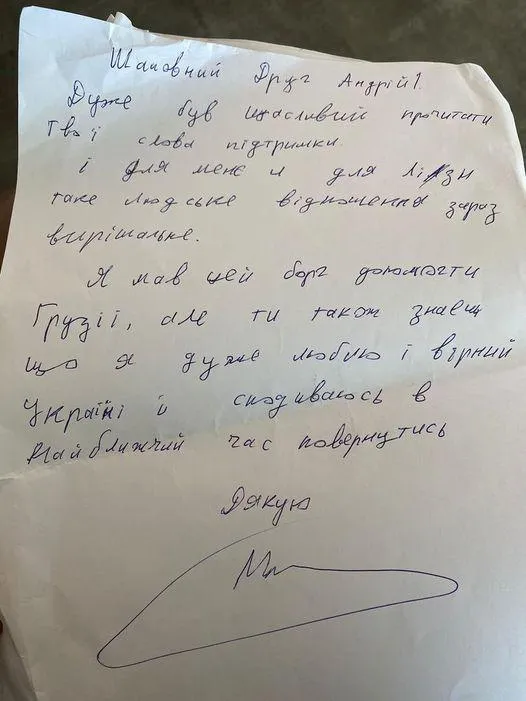 Шановний Друг Андрій!
Дуже був щасливий прочитати
твої слова підтримки.
і для мене й для Лізи
таке людське відношення зараз
вирішальне.
Я мав цей борг допомогти
Грузії, але ти також знаєш
що я дуже люблю і вірний
Україні й сподиваюсь в
найближчий час повернутись
Дякую